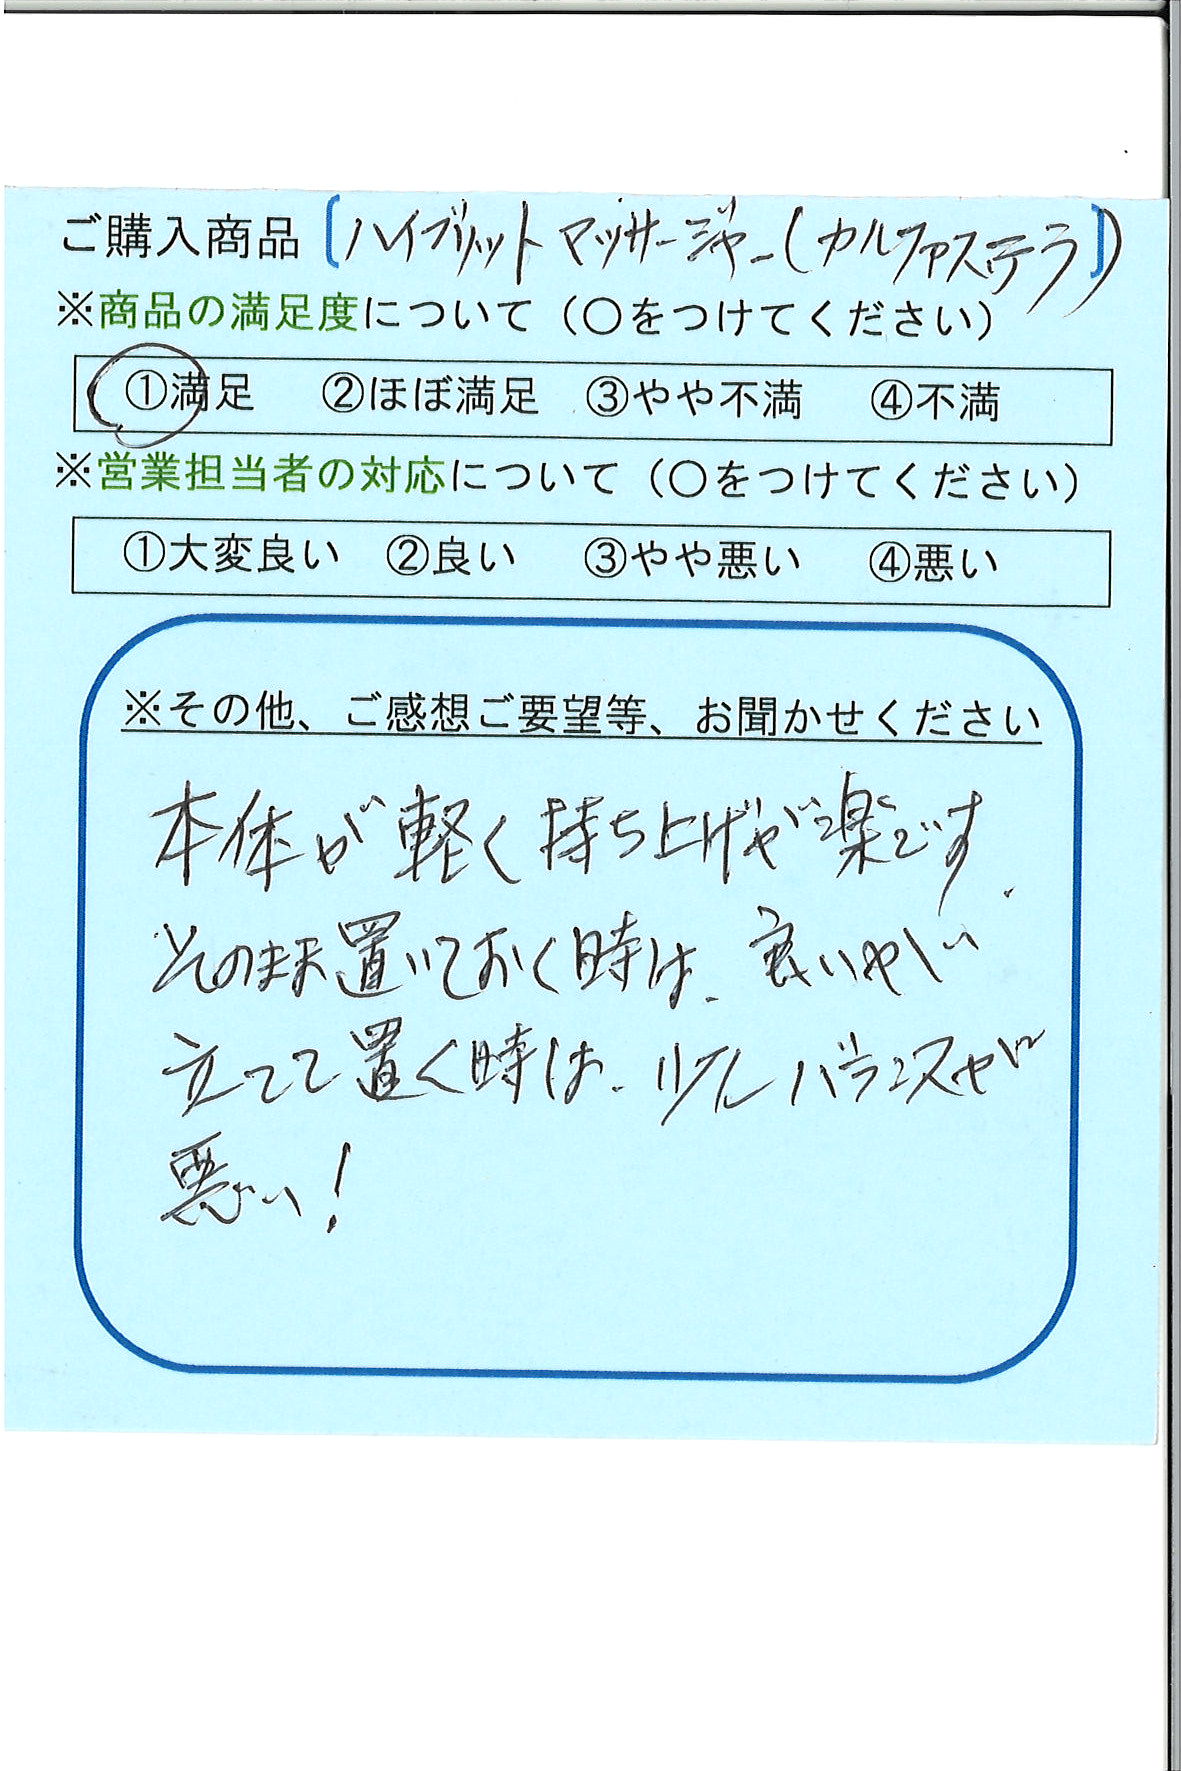 ご購入商品［ハイブリットマッサージャー（カルファステラ）］
※商品の満足度について（〇をつけてください）
①満足 ②ほぼ満足 ③やや不満 ④不満
※営業担当者の対応について（〇をつけてください）
①大変良い ②良い ③やや悪い ④悪い
※その他、ご感想ご要望等、お聞かせください
本体が軽く持ち上げが楽です.
そのまま置いておく時は、良いが
立てて置く時は、少しバランスが
悪い！